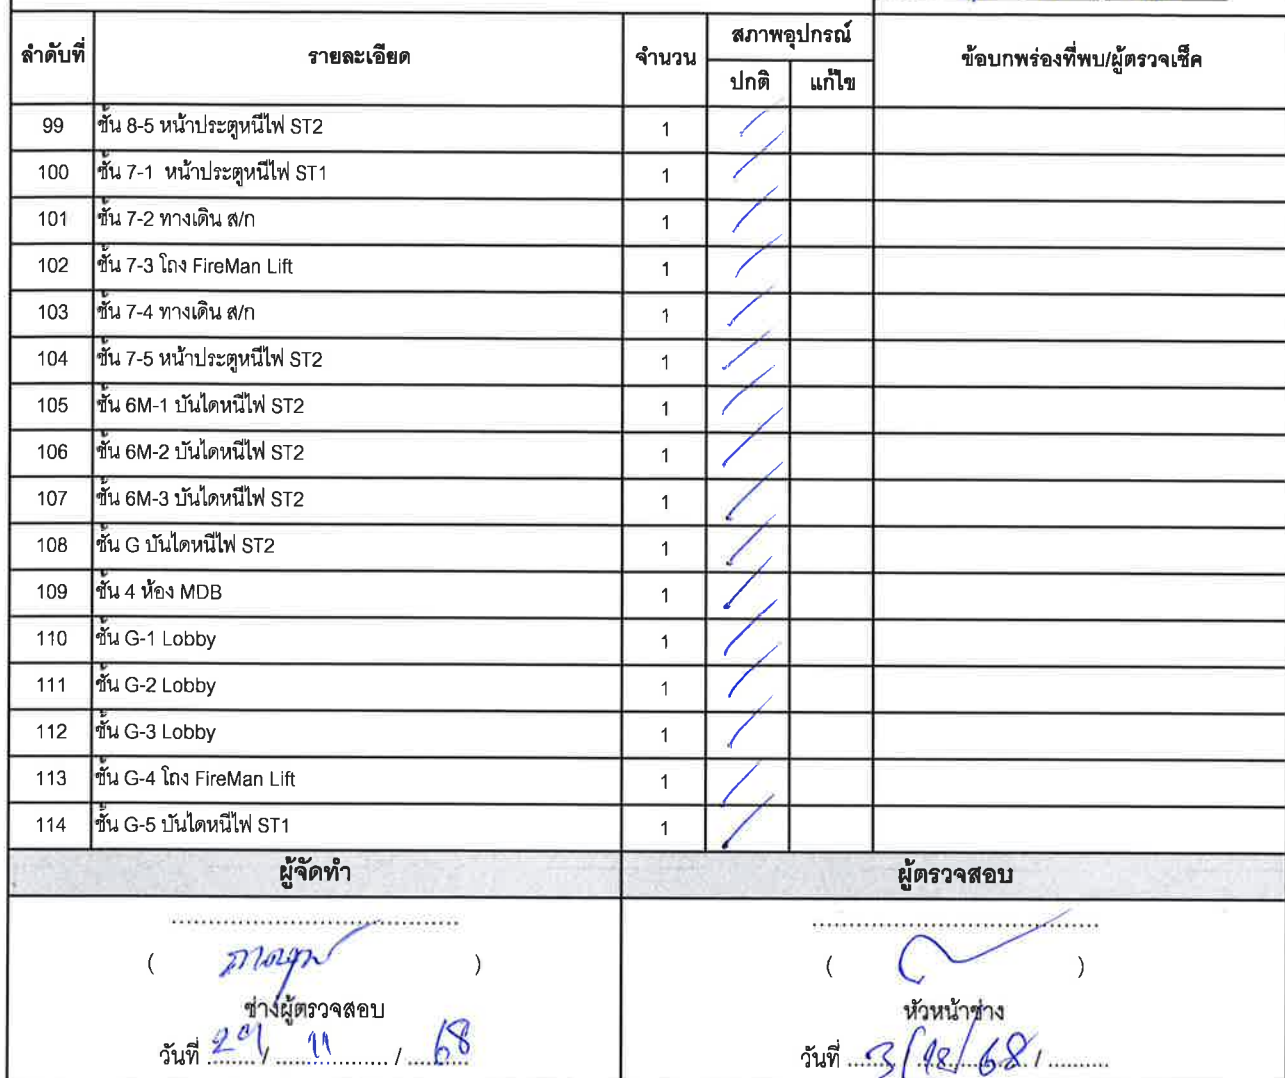 ลำดับที่ รายละเอียด จำนวน สภาพอุปกรณ์ ข้อบกพร่องที่พบ/ผู้ตรวจเช็ค
ปกติ แก้ไข
99 ชั้น 8-5 หน้าประตูหนีไฟ ST2 1 /
100 ชั้น 7-1 หน้าประตูหนีไฟ ST1 1 /
101 ชั้น 7-2 ทางเดิน ส/ก 1 /
102 ชั้น 7-3 โถง FireMan Lift 1 /
103 ชั้น 7-4 ทางเดิน ส/ก 1 /
104 ชั้น 7-5 หน้าประตูหนีไฟ ST2 1 /
105 ชั้น 6M-1 บันไดหนีไฟ ST2 1 /
106 ชั้น 6M-2 บันไดหนีไฟ ST2 1 /
107 ชั้น 6M-3 บันไดหนีไฟ ST2 1 /
108 ชั้น G บันไดหนีไฟ ST2 1 /
109 ชั้น 4 ห้อง MDB 1 /
110 ชั้น G-1 Lobby 1 /
111 ชั้น G-2 Lobby 1 /
112 ชั้น G-3 Lobby 1 /
113 ชั้น G-4 โถง FireMan Lift 1 /
114 ชั้น G-5 บันไดหนีไฟ ST1 1 /
ผู้จัดทำ ผู้ตรวจสอบ
( ) ( )
ช่างผู้ตรวจสอบ หัวหน้าช่าง
วันที่ 29 / 11 / 68 วันที่ 3/12/68 /